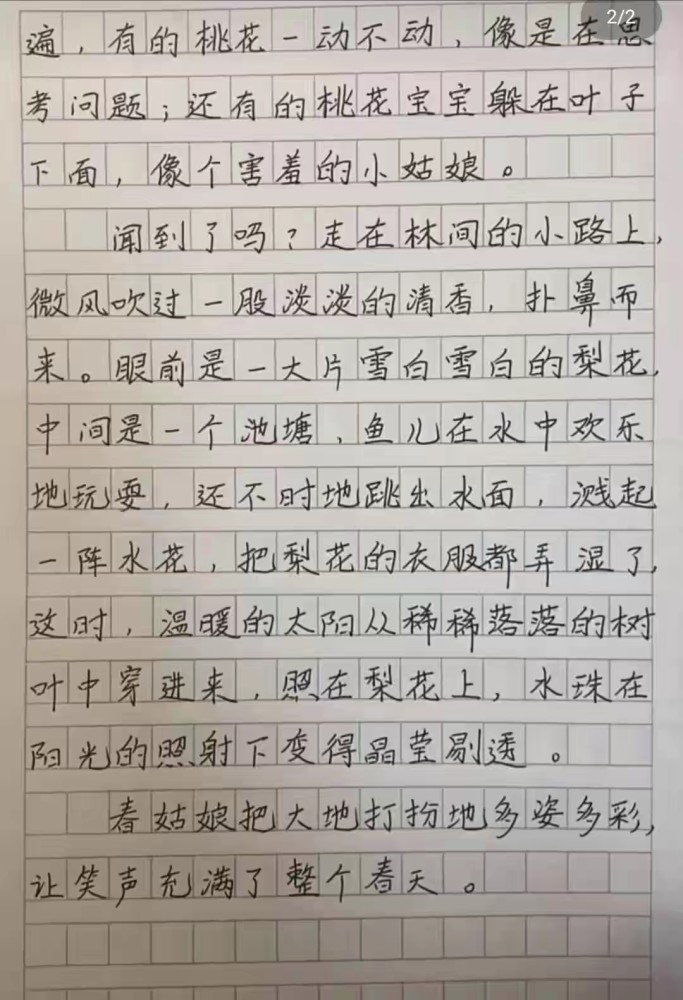 2/2
遍，有的桃花一动不动，像是在思
考问题；还有的桃花宝宝躲在叶子
下面，像个害羞的小姑娘。
闻到了吗？走在林间的小路上，
微风吹过一股淡淡的清香，扑鼻而
来。眼前是一大片雪白雪白的梨花，
中间是一个池塘、鱼儿在水中欢乐
地玩耍，还不时地跳出水面，溅起
一阵水花，把梨花的衣服都弄湿了，
这时，温暖的太阳从稀稀落落的树
叶中穿进来，照在梨花上，水珠在
阳光的照射下变得晶莹剔透。
春姑娘把大地打扮地多姿多彩，
让笑声充满了整个春天。